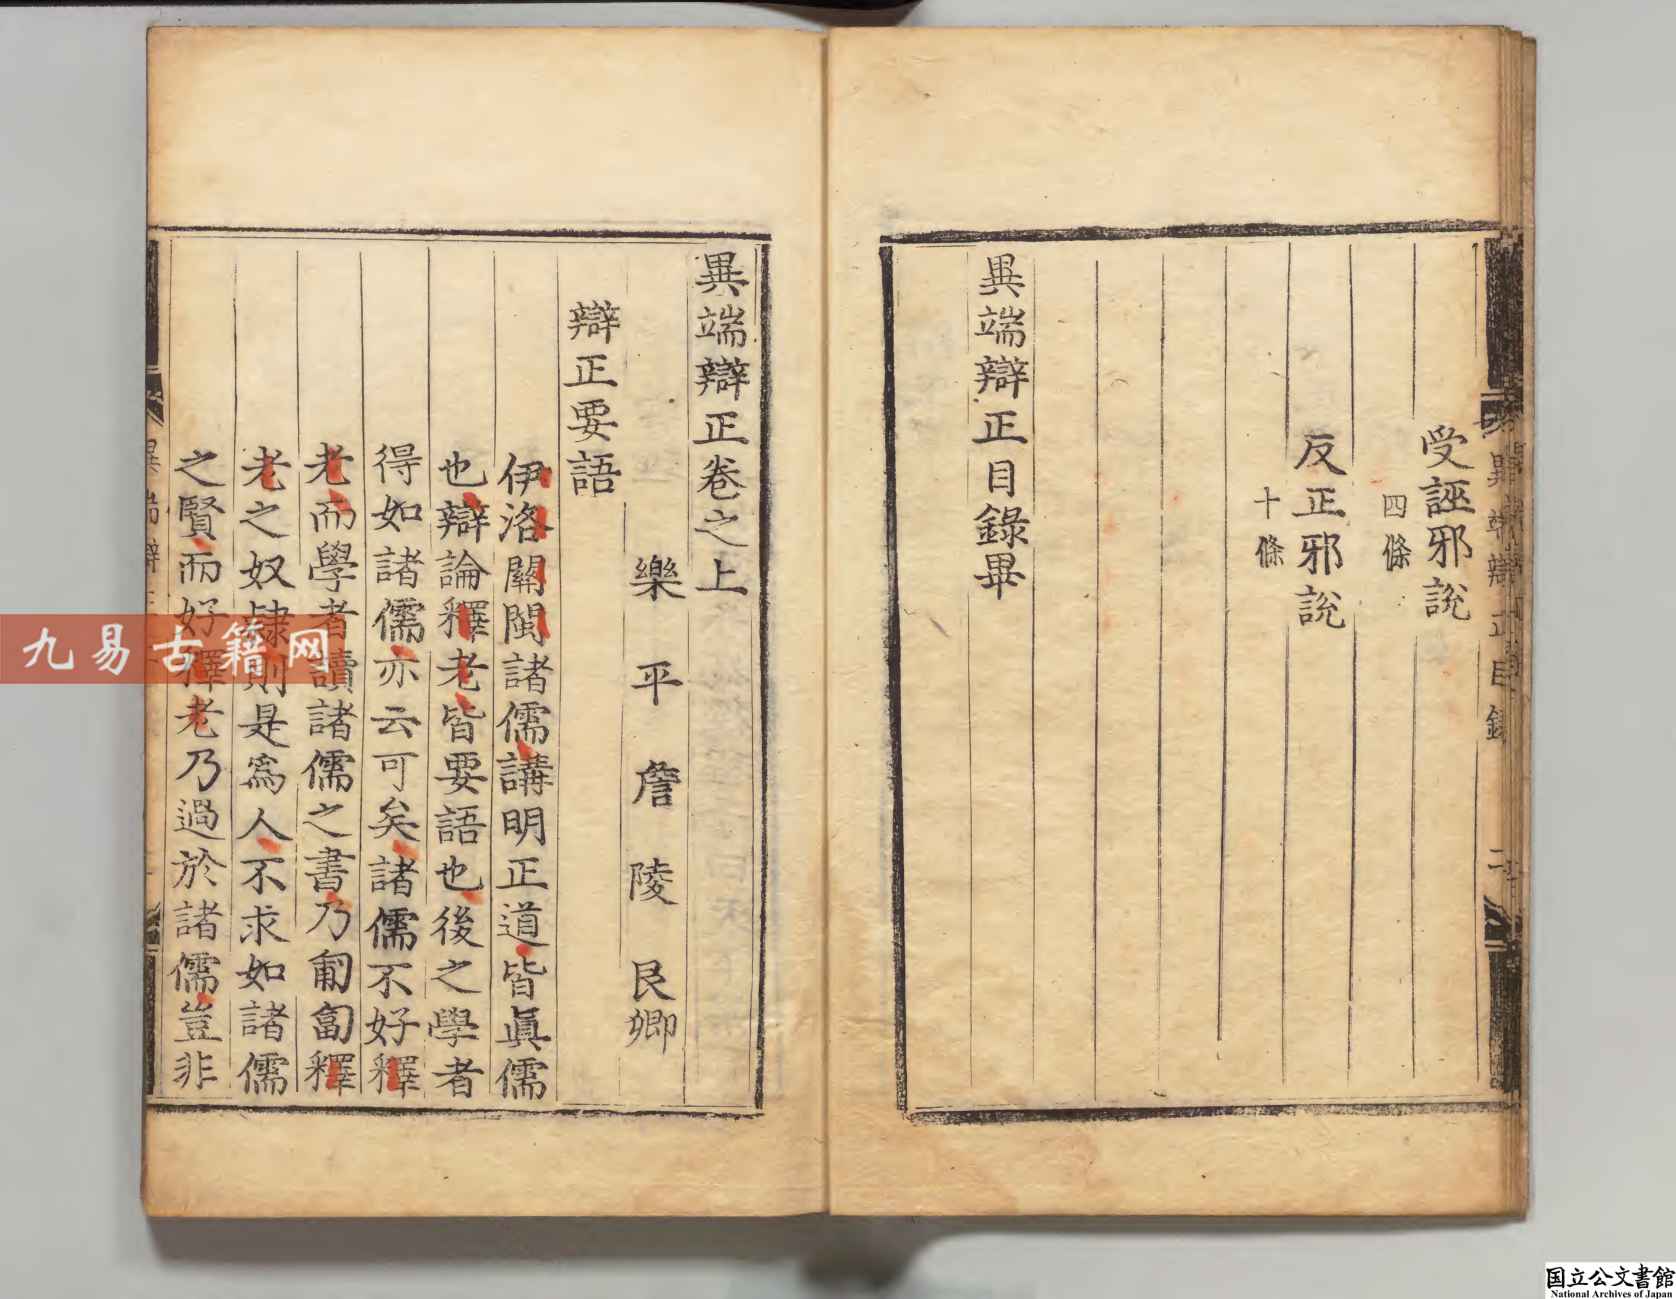 受誣邪說
四條
反正邪說
十條
異端辯正目錄畢
異端辯正目錄
二
異端辯正卷之上
樂平詹陵艮卿
辯正要語
伊洛關閩諸儒講明正道皆眞儒
也辯論釋老皆要語也後之學者
得如諸儒亦云可矣諸儒不好釋
老而學者讀諸儒之書乃匍匐釋
老之奴隷則是爲人不求如諸儒
之賢而好釋老乃過於諸儒豈非
異端辯
九易古籍网
国立公文書館
National Archives of Japan